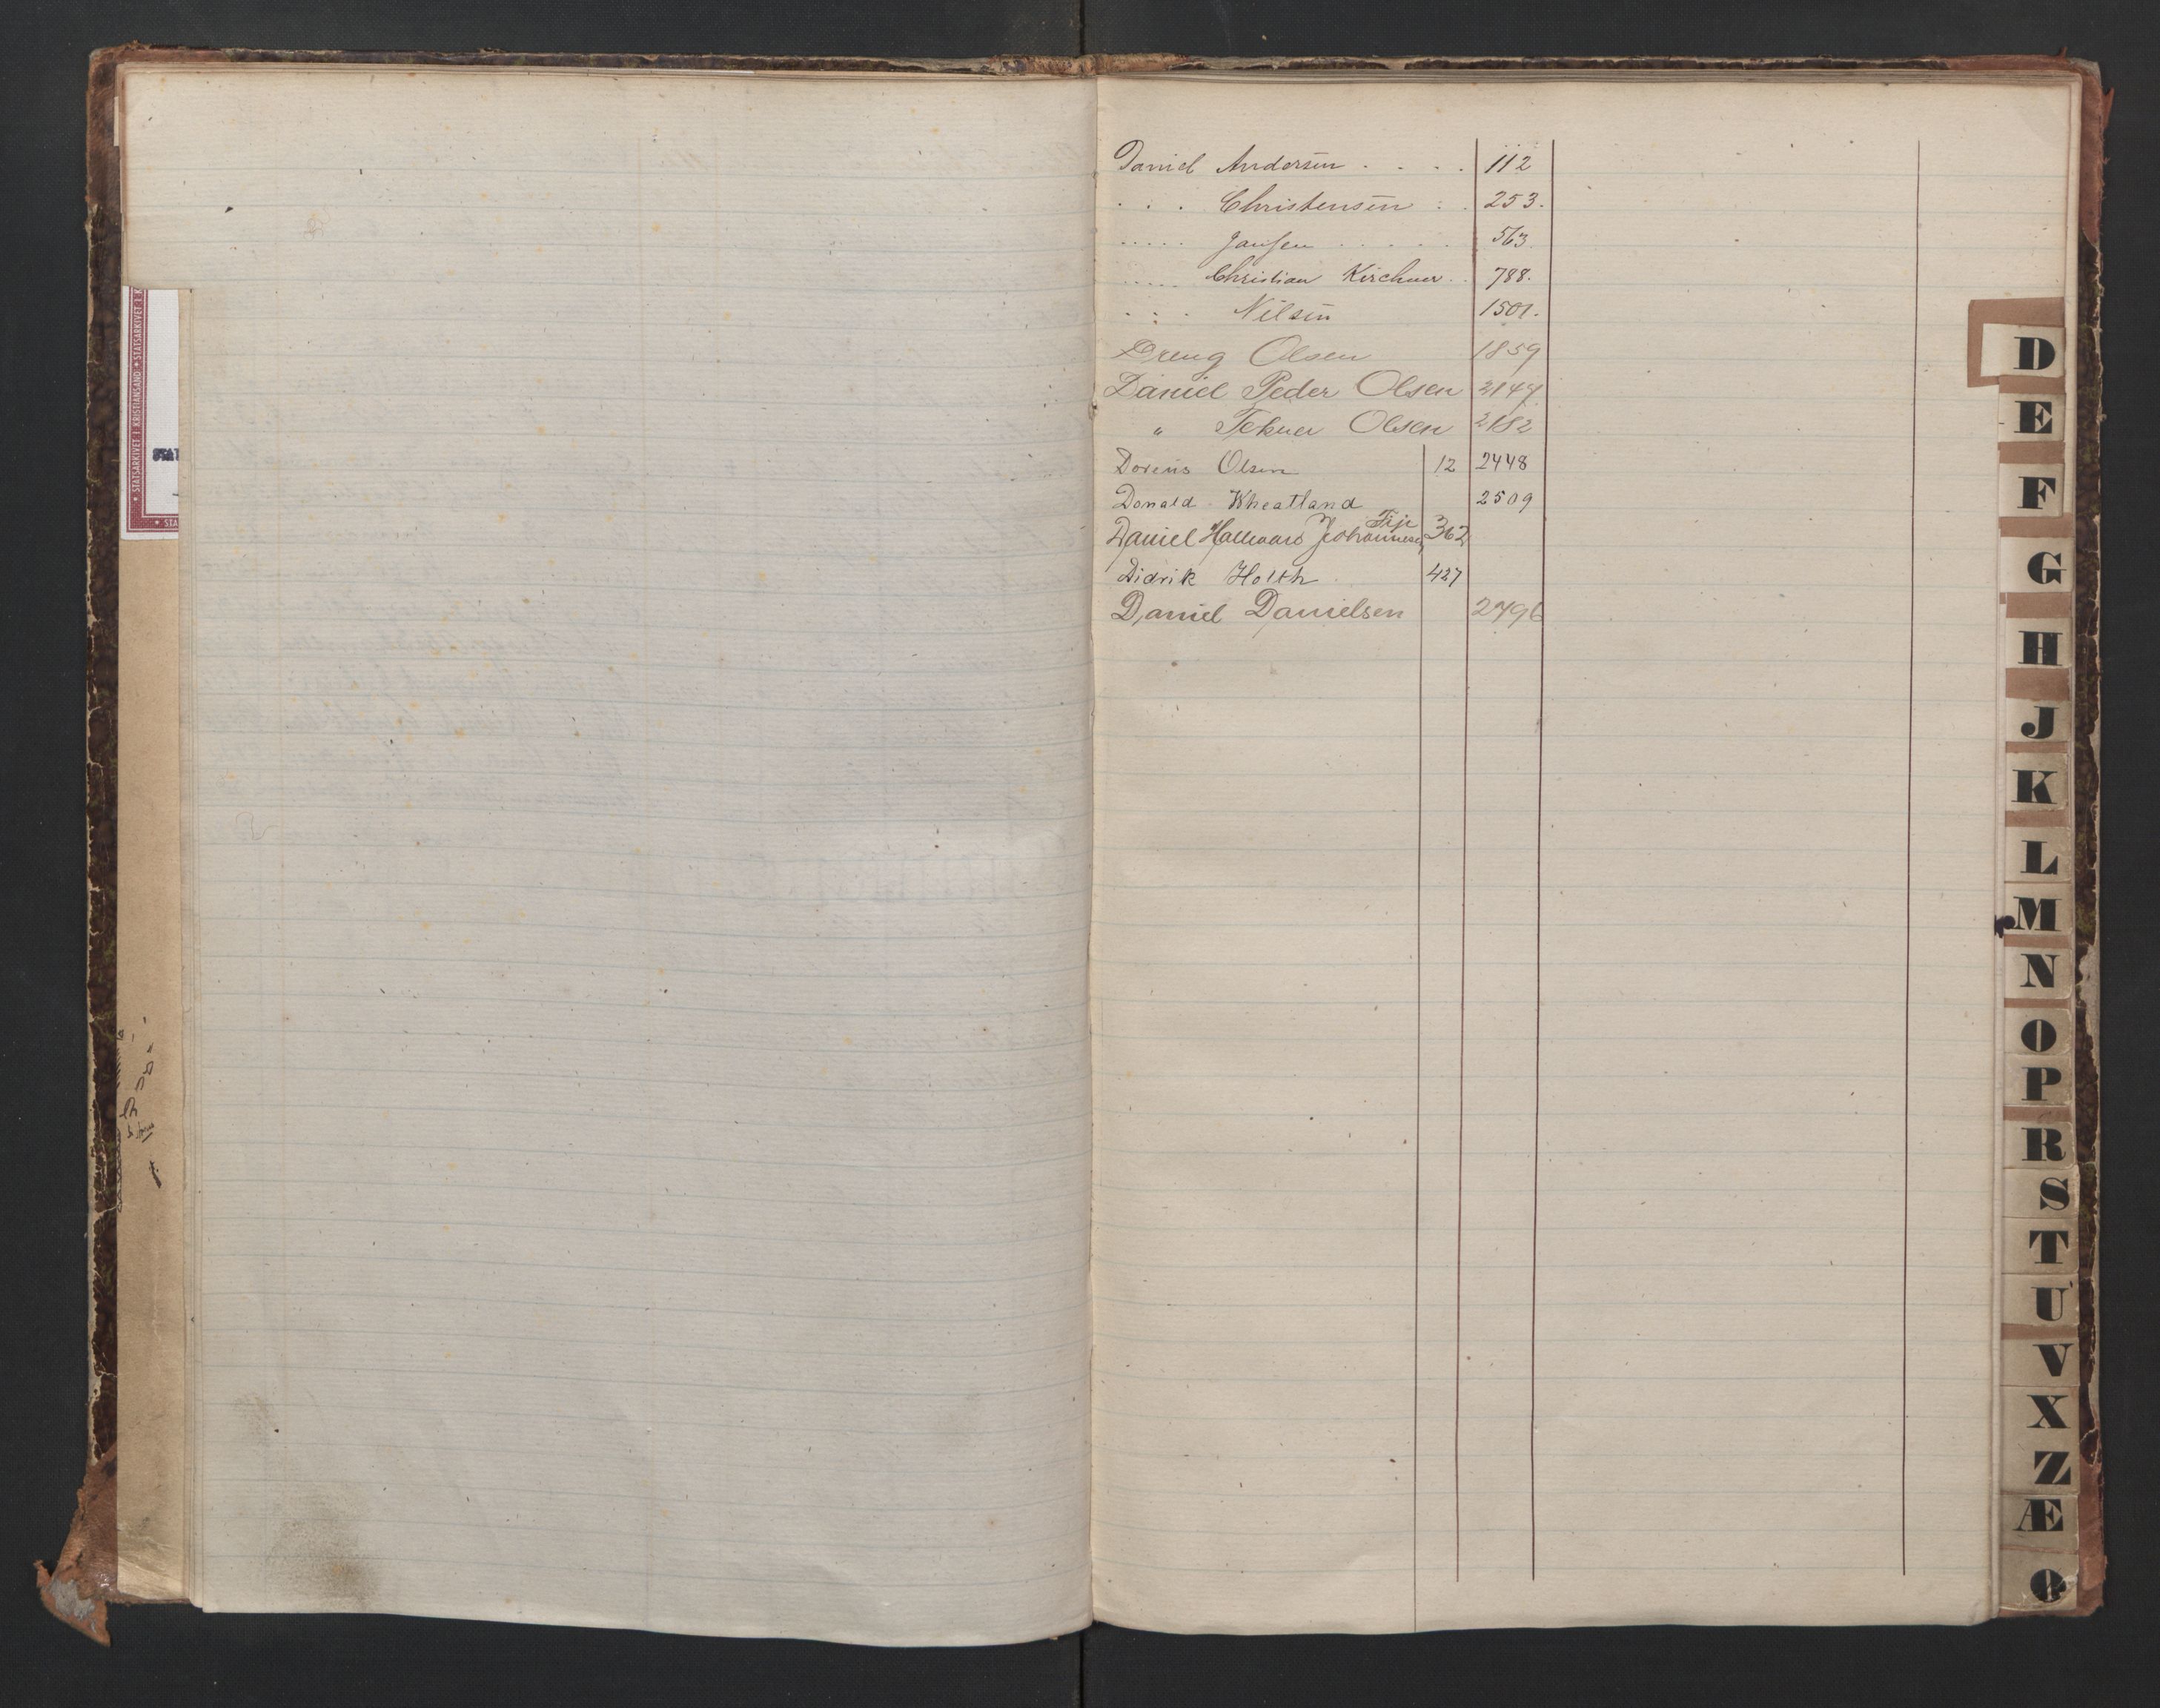 Daniel Andersen . . . . 112
. . . Christensen : . 253.
..... Jansen . . . . . 563.
..... Christian Kirchner . . 788.
. : . Nilsen 1501.
Dreng Olsen 1859
Daniel Peder Olsen 2147
" Olsen 2182
Dorenis Olsen 12 2448
Donald Wheatland 2509
Daniel Hallvard Johannesen 362
Didrik Holth 427
Daniel Danielsen 2496
STATSARKIVET I KRISTIANSAND * STATSARKIVET
D
E
F
G
H
J
K
L
M
N
O
P
R
S
T
U
V
X
Z
Æ
Ø